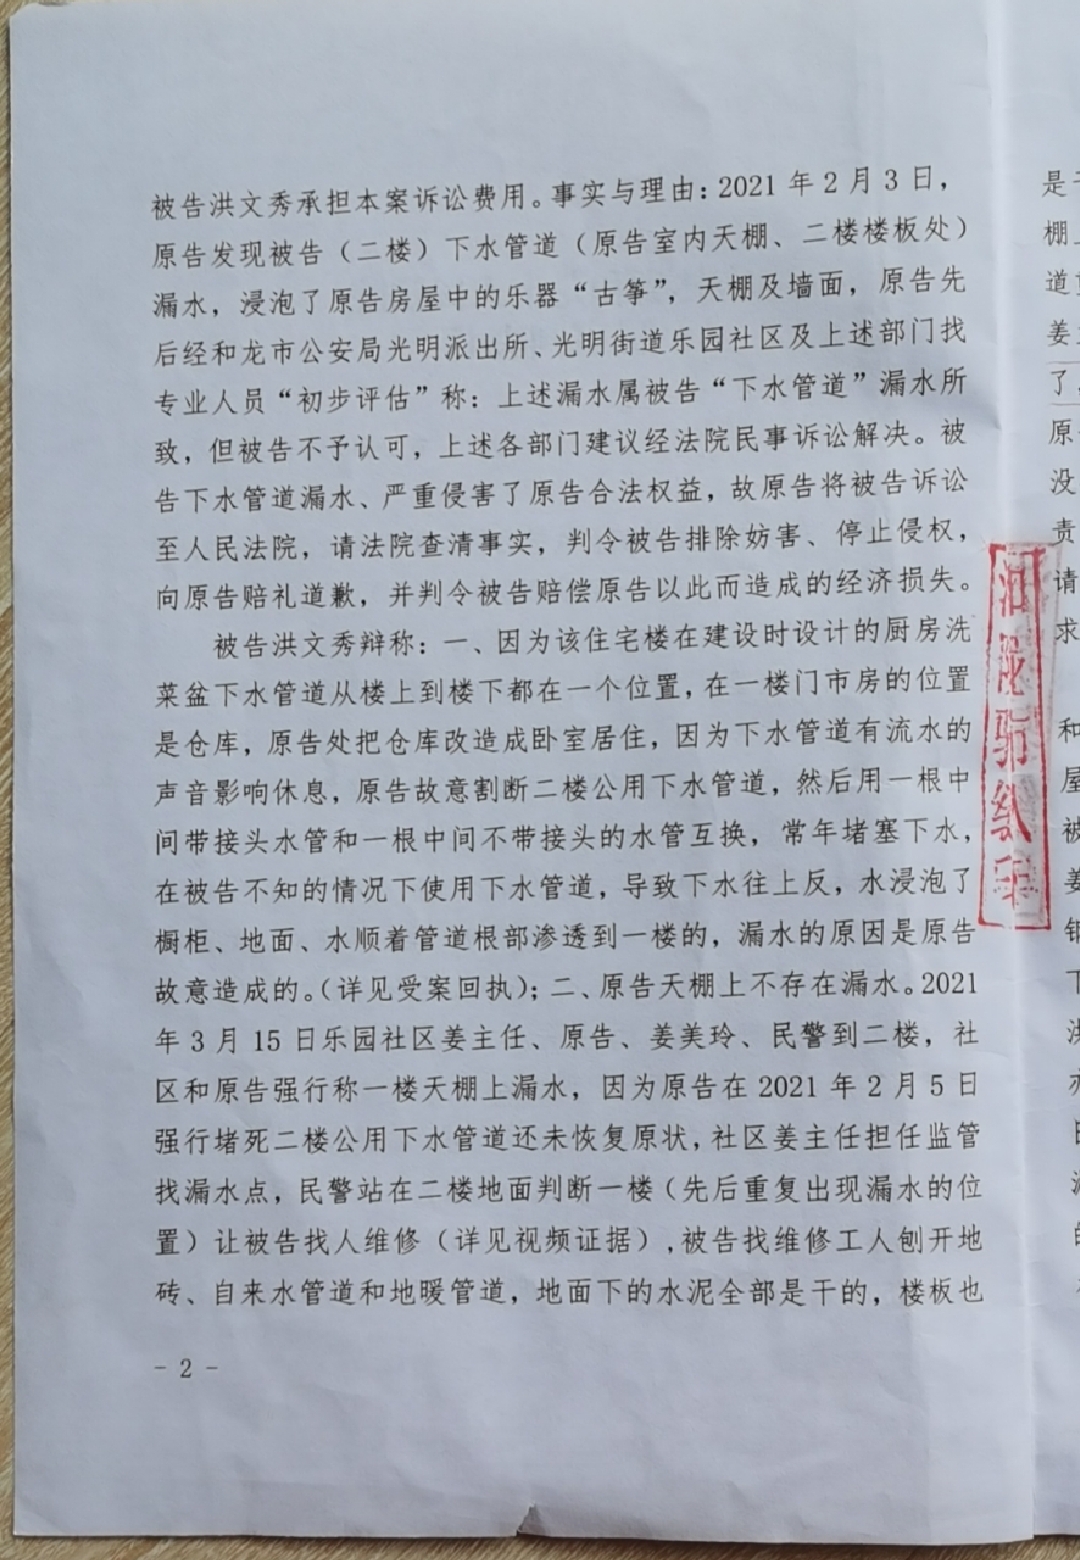 被告洪文秀承担本案诉讼费用。事实与理由：2021 年 2 月 3 日，
原告发现被告（二楼）下水管道（原告室内天棚、二楼楼板处）
漏水，浸泡了原告房屋中的乐器“古筝”，天棚及墙面，原告先
后经和龙市公安局光明派出所、光明街道乐园社区及上述部门找
专业人员“初步评估”称：上述漏水属被告“下水管道”漏水所
致，但被告不予认可，上述各部门建议经法院民事诉讼解决。被
告下水管道漏水、严重侵害了原告合法权益，故原告将被告诉讼
至人民法院，请法院查清事实，判令被告排除妨害、停止侵权，
向原告赔礼道歉，并判令被告赔偿原告以此而造成的经济损失。
被告洪文秀辩称：一、因为该住宅楼在建设时设计的厨房洗
菜盆下水管道从楼上到楼下都在一个位置，在一楼门市房的位置
是仓库，原告处把仓库改造成卧室居住，因为下水管道有流水的
声音影响休息，原告故意割断二楼公用下水管道，然后用一根中
间带接头水管和一根中间不带接头的水管互换，常年堵塞下水，
在被告不知的情况下使用下水管道，导致下水往上反，水浸泡了
橱柜、地面、水顺着管道根部渗透到一楼的，漏水的原因是原告
故意造成的。（详见受案回执）；二、原告天棚上不存在漏水。2021
年 3 月 15 日乐园社区姜主任、原告、姜美玲、民警到二楼，社
区和原告强行称一楼天棚上漏水，因为原告在 2021 年 2 月 5 日
强行堵死二楼公用下水管道还未恢复原状，社区姜主任担任监管
找漏水点，民警站在二楼地面判断一楼（先后重复出现漏水的位
置）让被告找人维修（详见视频证据），被告找维修工人刨开地
砖、自来水管道和地暖管道，地面下的水泥全部是干的，楼板也
- 2 -
是
棚
道
姜
了
原
没
责
请
求
和
屋
被
姜